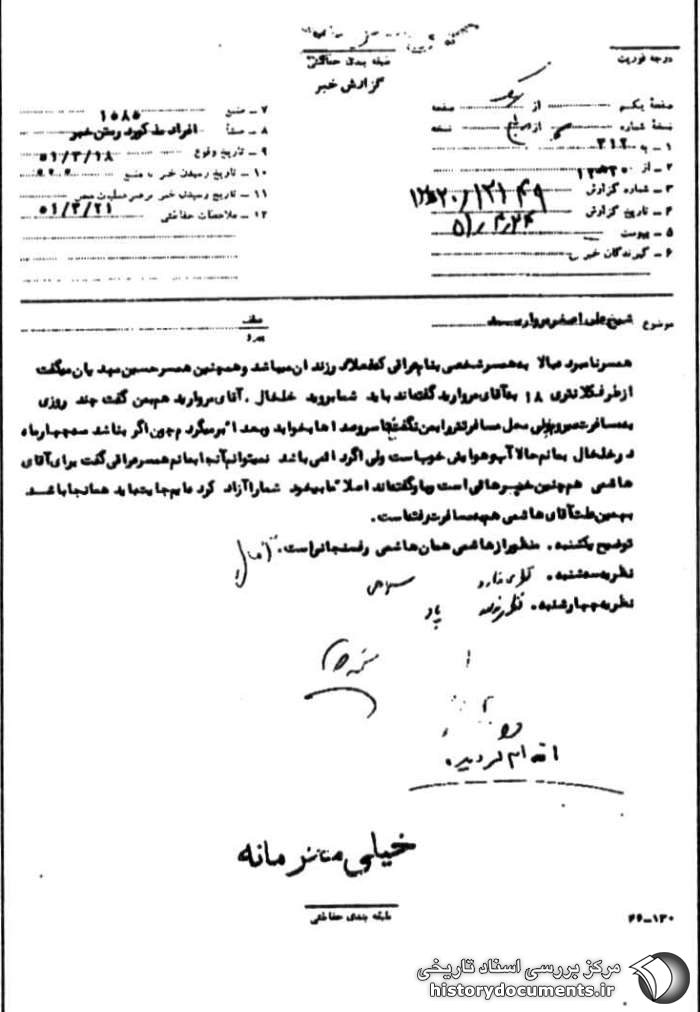 درجه فوریت
طبقه بندی حفاظتی
گزارش خبر
صفحهٔ یکم از یک صفحه
نسخهٔ شماره از نسخه
۱ ـ به ۳۱۲
۲ ـ از
۳ ـ شماره گزارش
۴ ـ تاریخ گزارش ۵۱/۳/۲۴
۵ ـ پیوست
۶ ـ گیرندگان خبر
۷ ـ منبع ۱۵۸۵
۸ ـ منشأ افراد مذکور در متن خبر
۹ ـ تاریخ وقوع ۵۱/۳/۱۸
۱۰ ـ تاریخ رسیدن خبر به منبع
۱۱ ـ تاریخ رسیدن خبر به رهبر عملیات ۵۱/۳/۲۱
۱۲ ـ ملاحظات حفاظتی
موضوع شیخ علی اصغر مروارید
عطف
پیرو
همسر نامبرده بالا به همسر شخصی بنام عراقی که در زندان میباشد و همچنین همسر حسین مهدیان میگفت
از طرف کلانتری ۱۸ به آقای مروارید گفته‌اند باید شما بروید خلخال . آقای مروارید هم بمن گفت چند روزی
به مسافرت میروم ولی محل مسافرتش را بمن نگفت تا سر و صداها بخوابد و بعداً برمیگردم چون اگر بنا شد سه چهار ماه
در خلخال بمانم حالا آب و هوایش خوب است ولی اگر دائمی باشد نمیتوانم آنجا بمانم همسر عراقی گفت برای آقای
هاشمی هم چنین خبرهائی است و باو گفته‌اند اصلا ما بیخود شما را آزاد کرده‌ایم جایت باید همانجا باشد
بهمین علت آقای هاشمی هم به مسافرت رفته است .
توضیح یکشنبه . منظور از هاشمی همان هاشمی رفسنجانی است .
نظریه سه‌شنبه . نظری ندارد
نظریه چهارشنبه . نظری ندارد
اقدام گردید .
خیلی محرمانه
طبقه بندی حفاظتی
۴۶-۱۳۰
مرکز بررسی اسناد تاریخی
historydocuments.ir